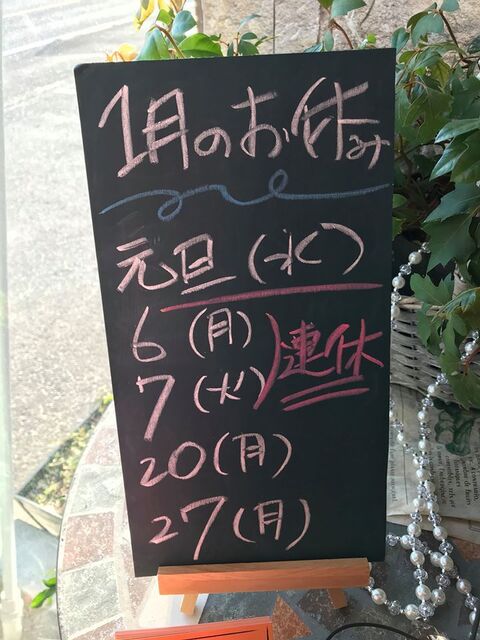 1月のお休み
元旦(水)
6(月)
7(火)
連休
20(月)
27(月)